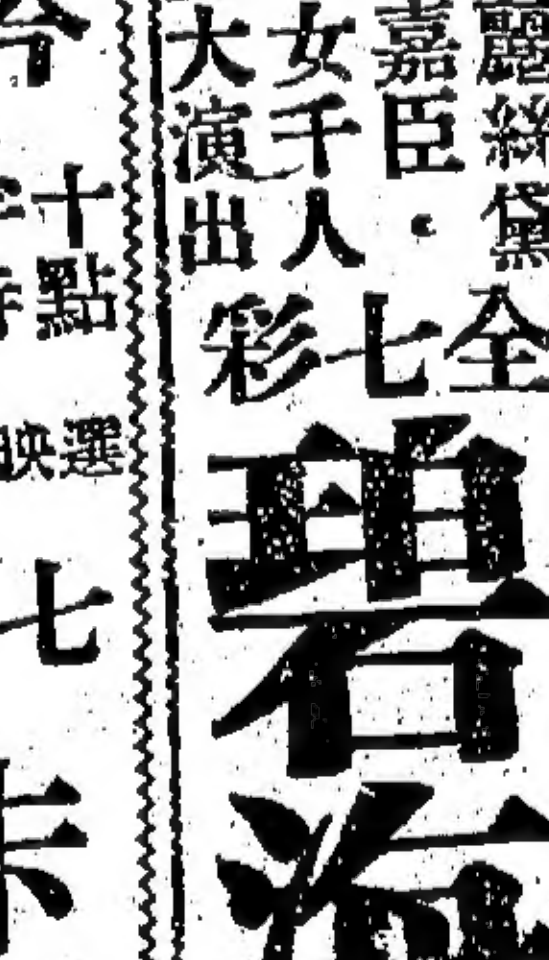 麗絲黛
嘉臣・
女千人
大演出
全七彩
碧海
今
十點
選映
七